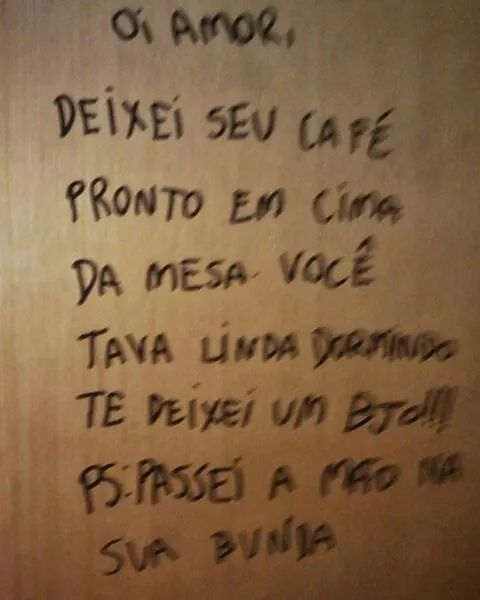 Oi AMOR,
DEIXEI SEU CAFÉ
PRONTO EM CIMA
DA MESA. VOCÊ
TAVA LINDA DORMINDO
TE DEIXEI UM BJO!!!
PS: PASSEI A MÃO NA
SUA BUNDA